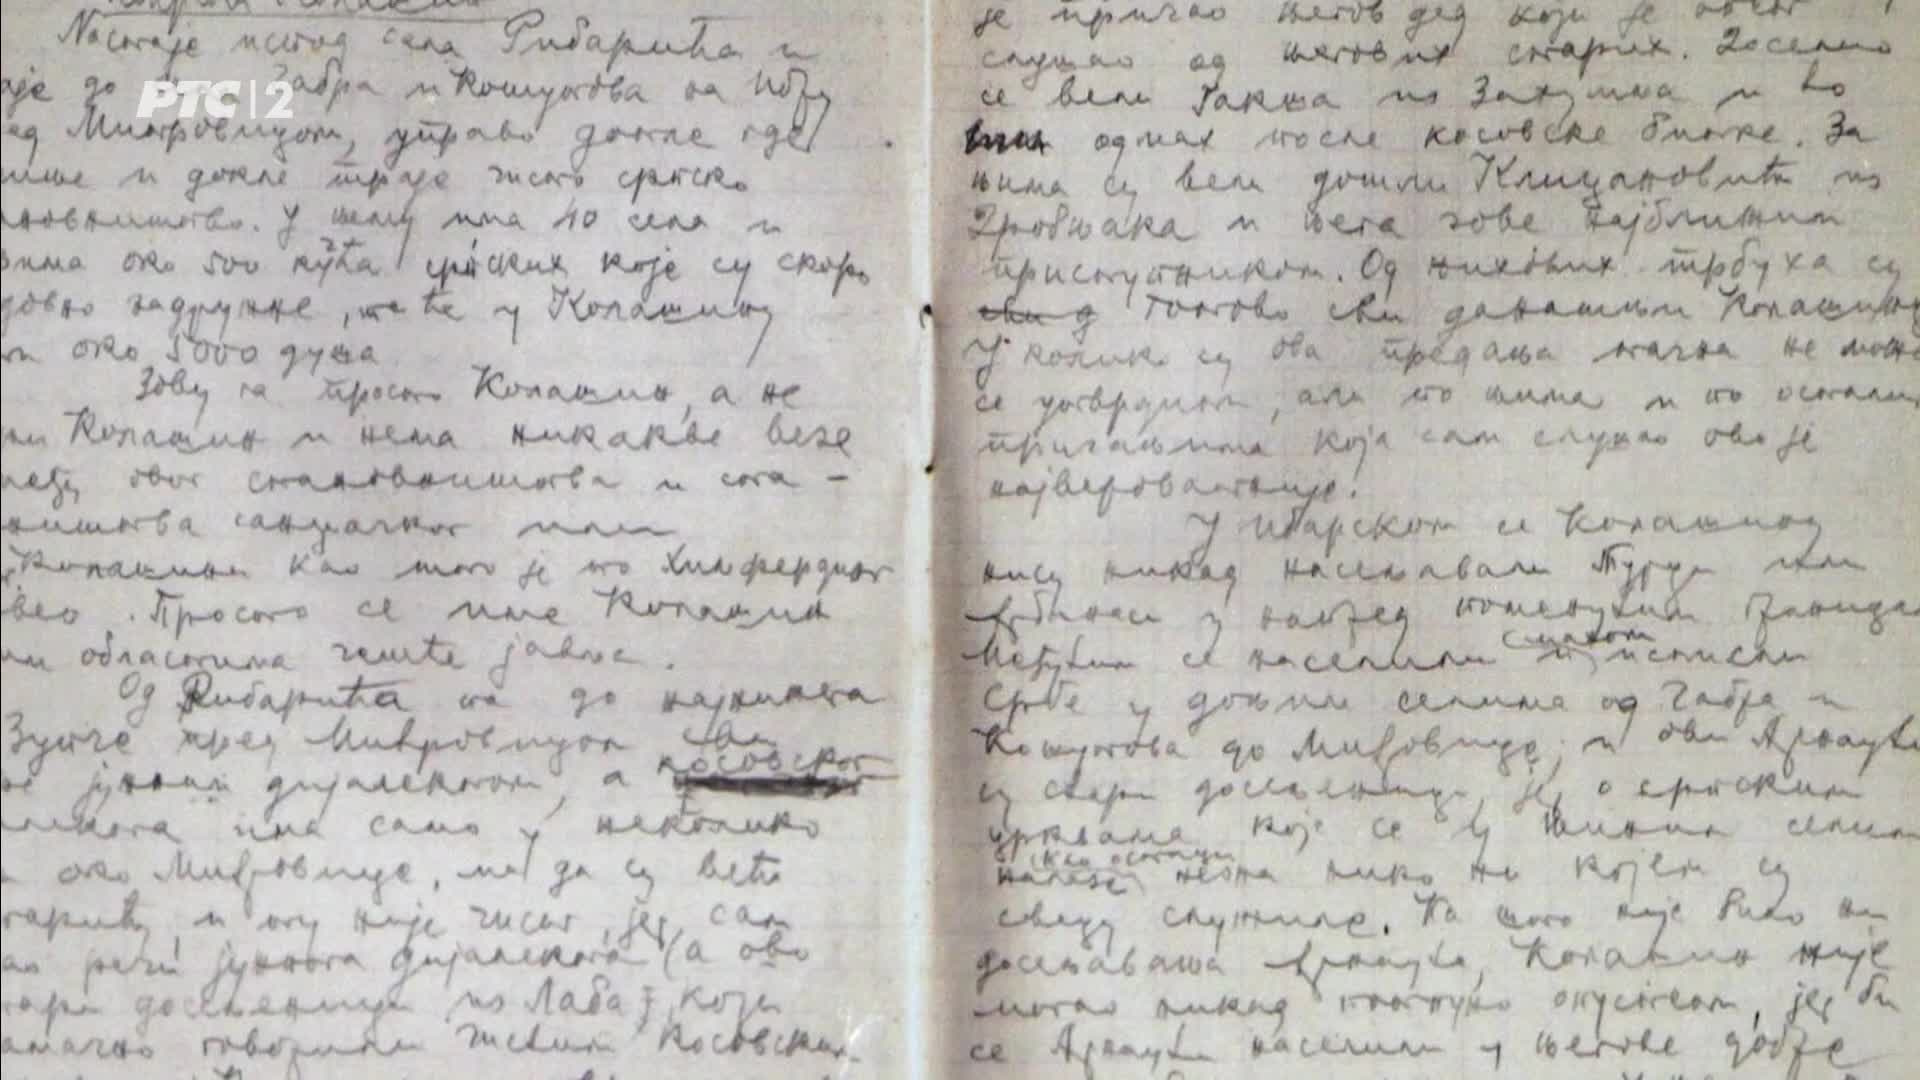 Настаје испод села Рибарића и
аје до Чабра и Кошутова на Ибру
РТС|2
ед Митровицом, управо донле где
и докле траје чисто српско
У њему има 40 села и
око 500 кућа српских које су скоро
задружне, па ће у Колашину
око 5000 душа
Зову га просто Колашин, а не
Колашин и нема никакве везе
овог становништва и ста-
санџачког или
Колашина као што је то Хилфердинг
вео. Просто се име Колашин
областима чешће јавља.
Од Рибарића па до
Зупче пред Митровицом сви
јужним дијалектом, а косовског
има само у неколико
око Митровице, ма да су већи
и ту није чист, јер сам
речи јужнога дијалекта (а ово
досељеници из Лаба, који
говорили чистим косовским
је причао његов дед који је
слушао од његових старих. Доселио
се вели Гакша из Захумља и то
одмах после косовске битке. За
њима су вели дошли Клицановићи из
Дробњака и њега зове најближим
Од њихових трбуха су
готово сви данашњи
У колико су ова предања тачна не може
се утврдити, али по њима и по осталим
причањима која сам слушао ово је
највероватније.
У Ибарском се Колашину
нису никад насељавали Турци или
Арбанаси у напред поменутим
Међутим се населили и истисли
Србе у доњим селима од Чабра и
Кошутова до Митровице; и ови Арнаути
су стари досељеници, јер о српским
црквама које се у њиним селима
као остаци
налазе нема нико ни којем су
свецу служиле. Па што није било ни
досељавања Арнаута, Колашин није
могао никад потпуно опустети, јер би
се Арнаути населили у његове добре